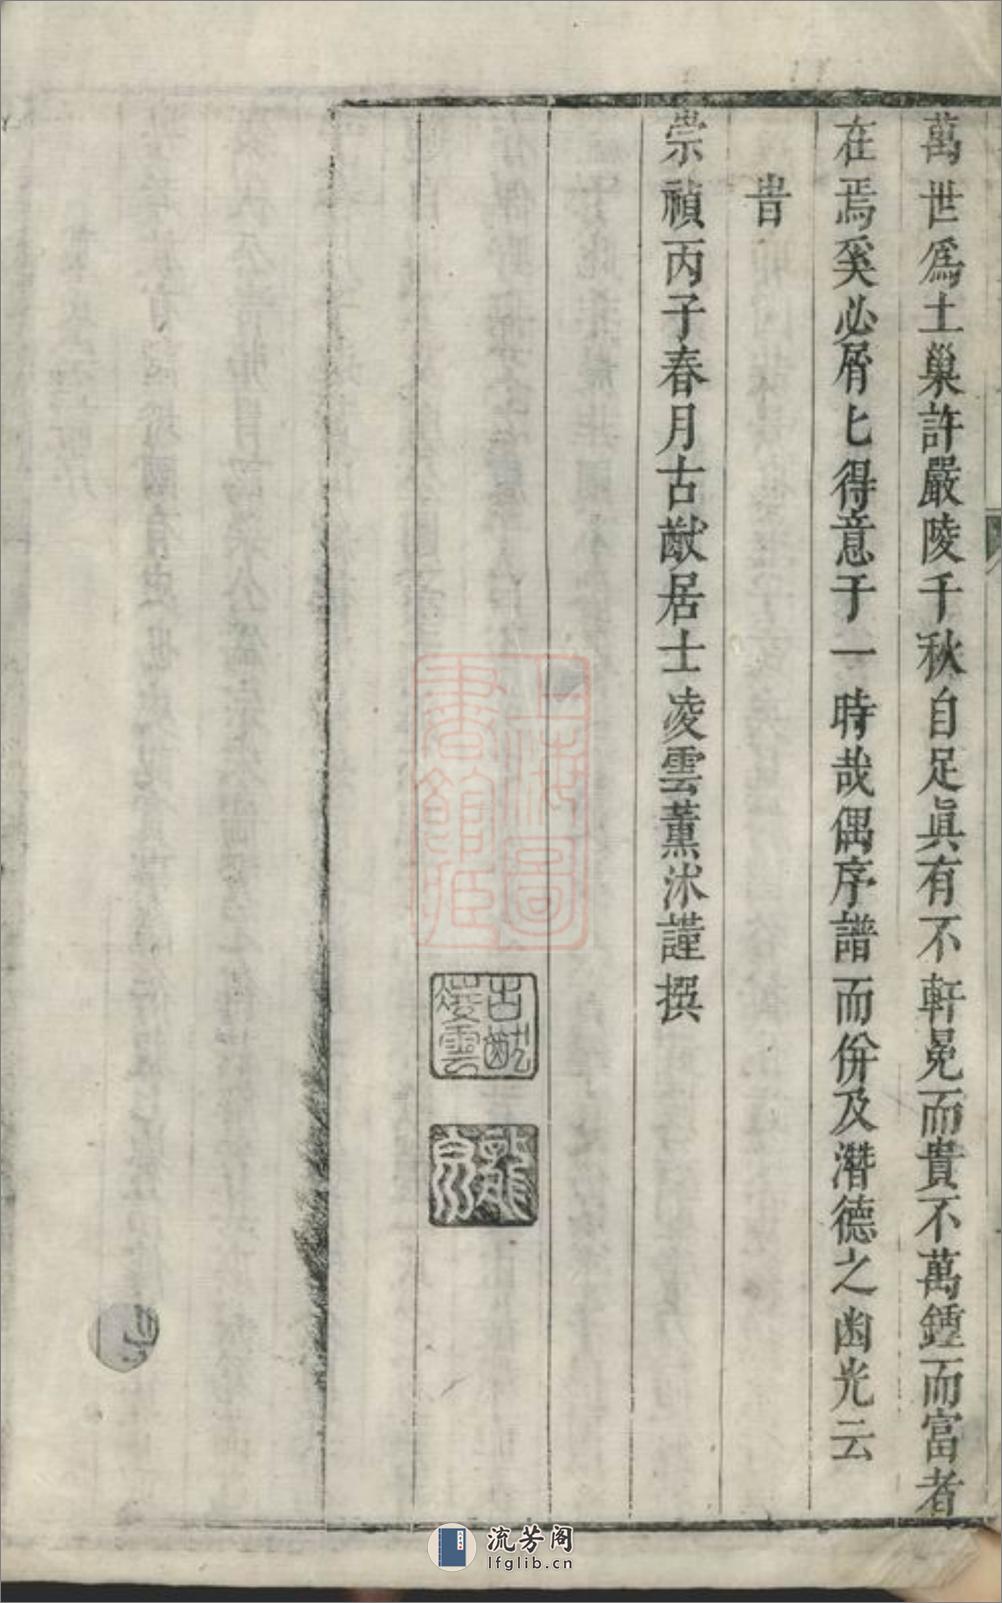 萬世爲土巢許嚴陵千秋自足眞有不軒冕而貴不萬鍾而富者
在焉奚必屑匕得意于一時哉偶序譜而併及潛德之幽光云
旹
崇禎丙子春月古歙居士凌雲薰沐謹撰
上海圖書館藏
古歙凌雲
流芳阁
lfglib.cn